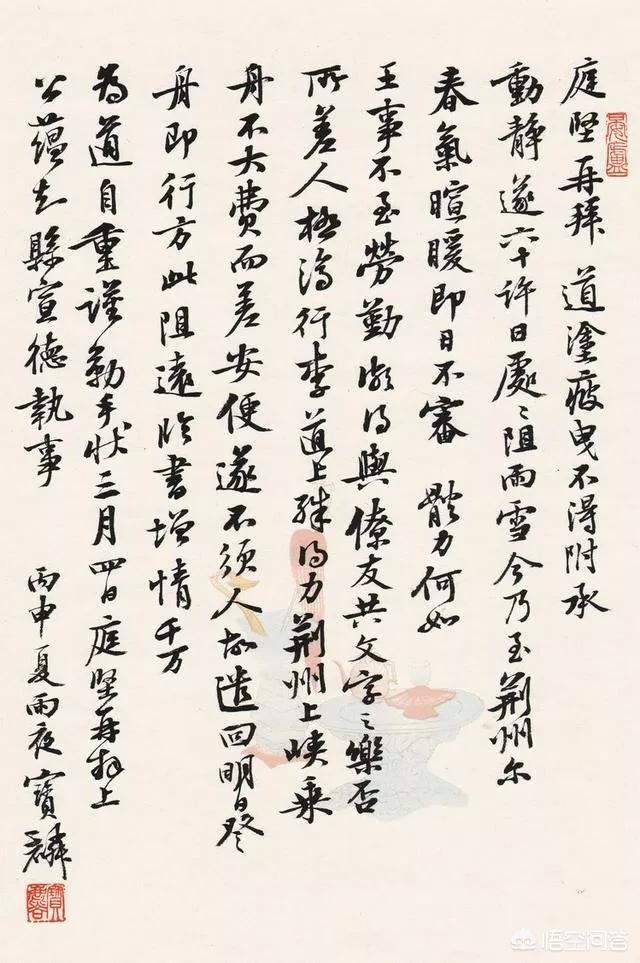 庭堅再拜 道塗疲曳不得附承
動靜遂六十許日處〻阻雨雪今乃至荆州尔
春氣暄暖即日不審 體力何如
王事不至勞勤頗得與僚友共文字之樂否
所差人極濟行李道上殊得力荆州上峽乘
舟不大費而差安便遂不須人故遣回明日登
舟即行方此阻遠臨書增情千万
為道自重謹勒手狀三月四日庭堅再拜上
公蘊知縣宣德執事
丙申夏雨夜寶麟
悟空问答